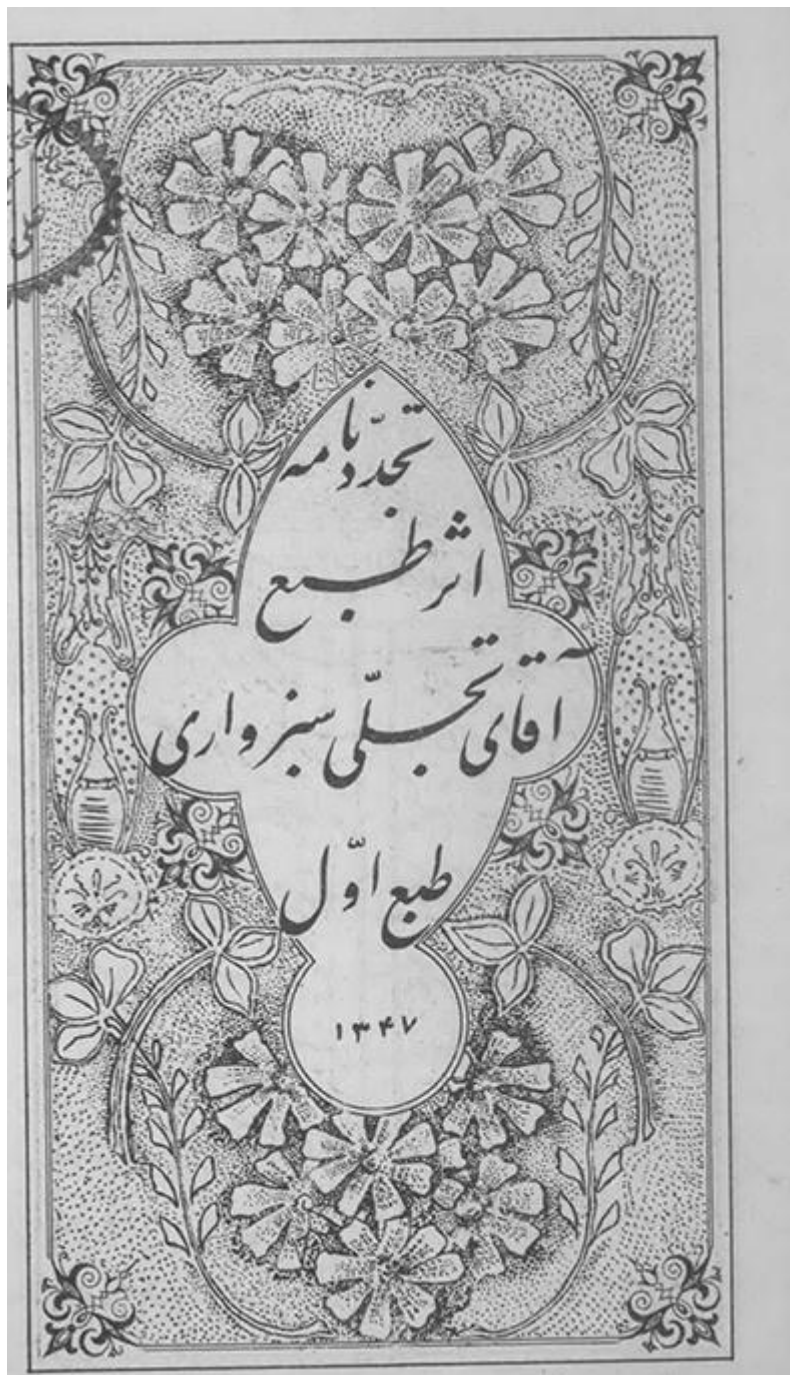 تجدّدنامه
اثر طبع
آقای تجلّی سبزواری
طبع اوّل
۱۳۴۷